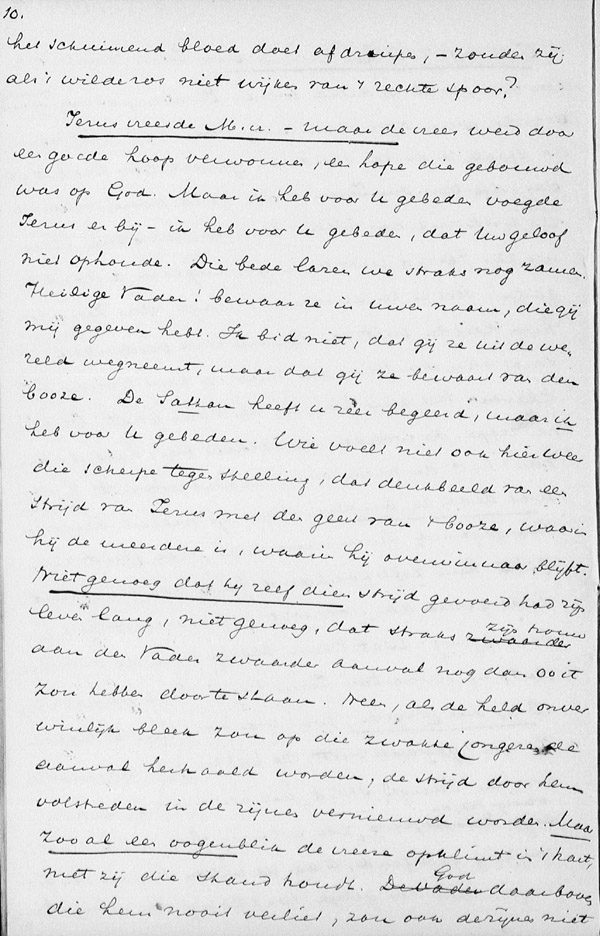 10.
het schuimend bloed doet afdruipen, – zonder zij
als 't wilde ros niet wijken van 't rechte spoor?
Jezus vreesde M.H. – maar de vrees werd door
een goede hoop verwonnen, een hope die gebouwd
was op God. Maar ik heb voor U gebeden voegde
Jezus er bij – ik heb voor U gebeden, dat Uw geloof
niet ophoude. Die bede lazen we straks nog zamen.
Heilige Vader! bewaar ze in uwen naam, die gij
mij gegeven hebt. Ik bid niet, dat gij ze uit de we
reld wegneemt, maar dat gij ze bewaart van den
booze. De Sathan heeft u zeer begeerd, maar ik
heb voor U gebeden. Wie voelt niet ook hier weer
die scherpe tegenstelling, dat denkbeeld van een
strijd van Jezus met den geest van 't booze, waarin
hij de meerdere is, waarin hij overwinnaar blijft.
Niet genoeg dat hij zelf dien strijd gevoerd had zijn
leven lang, niet genoeg, dat straks zijn trouw
aan den Vader zwaarder aanval nog dan ooit
zou hebben door te staan. Neen, als de held onver
winlijk bleek zou op die zwakke jongeren de
aanval herhaald worden, de strijd door hem
volstreden in de zijnen vernieuwd worden. Maar
zoo al een oogenblik de vreeze opklimt in 't hart,
niet zij die stand houdt. God daarboven
die hem nooit verliet, zou ook de zijnen niet